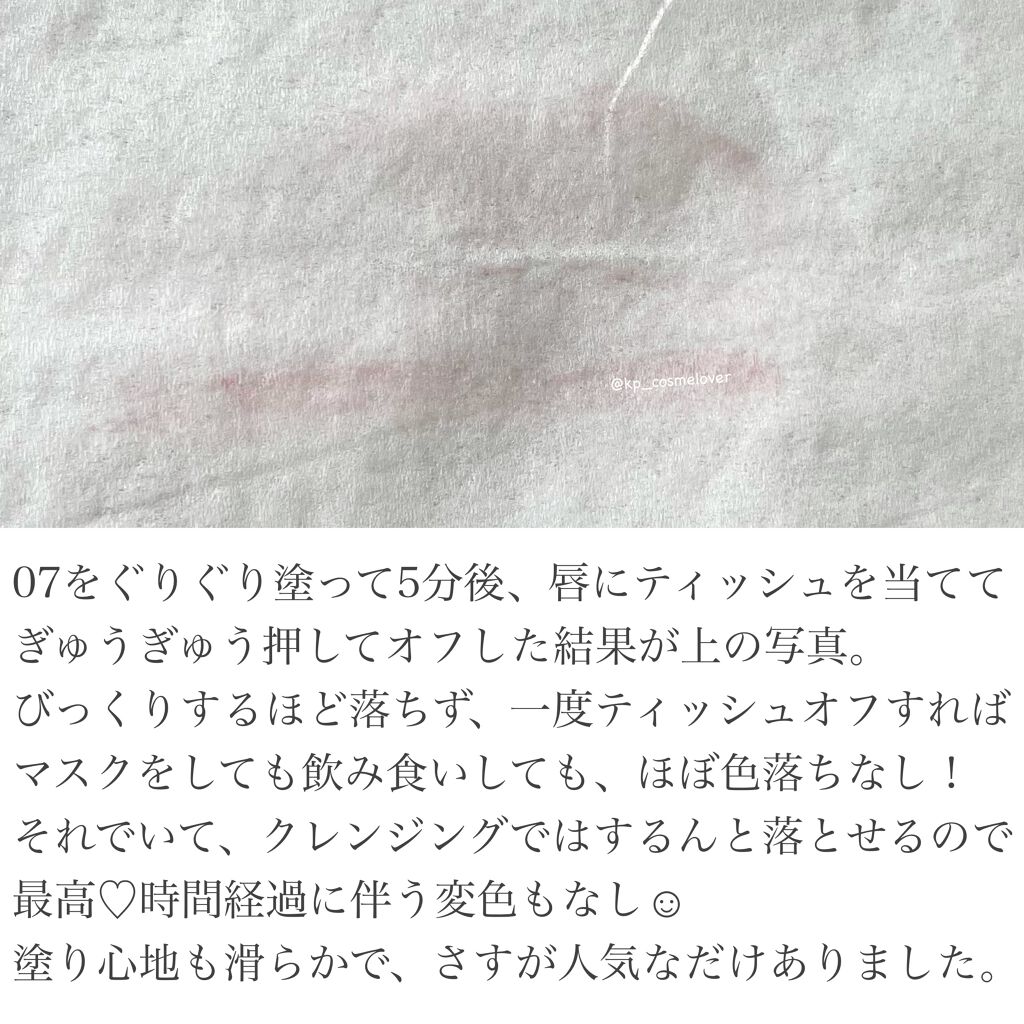 @kp_cosmelover
07をぐりぐり塗って5分後、唇にティッシュを当てて
ぎゅうぎゅう押してオフした結果が上の写真。
びっくりするほど落ちず、一度ティッシュオフすれば
マスクをしても飲み食いしても、ほぼ色落ちなし！
それでいて、クレンジングではするんと落とせるので
最高♡時間経過に伴う変色もなし☺
塗り心地も滑らかで、さすが人気なだけありました。